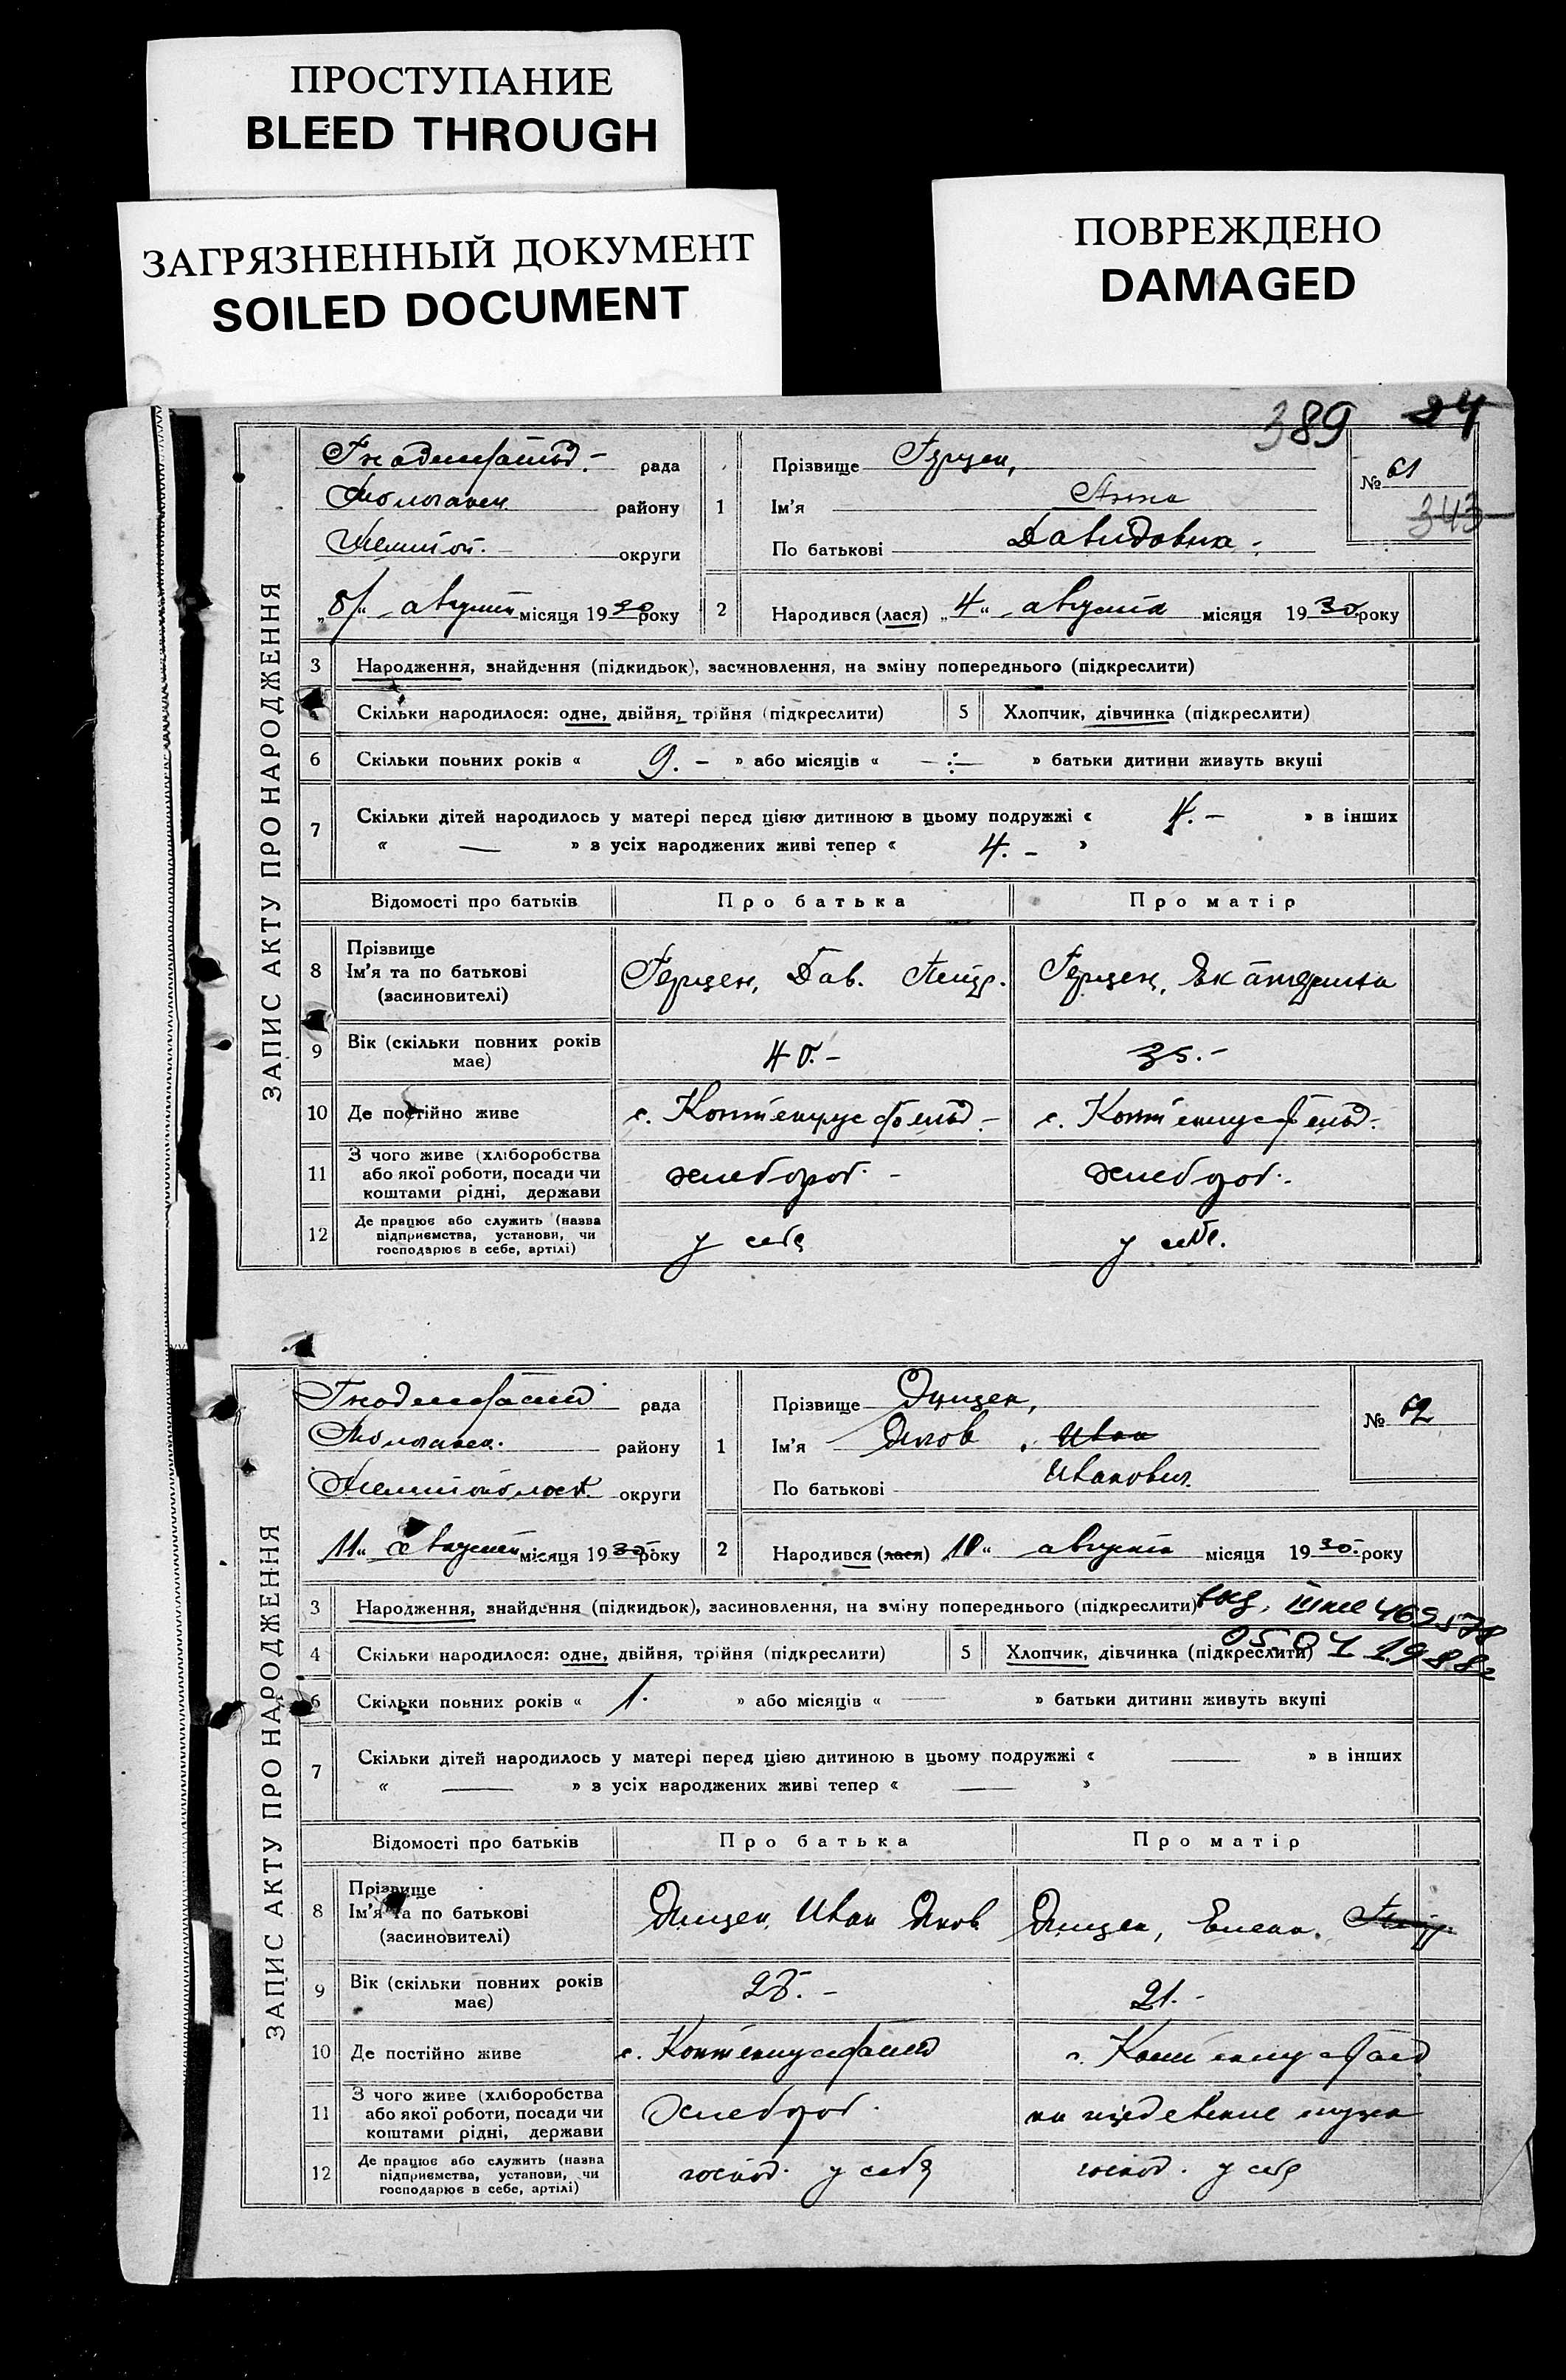 ПРОСТУПАНИЕ
BLEED THROUGH
ЗАГРЯЗНЕННЫЙ ДОКУМЕНТ
SOILED DOCUMENT
ПОВРЕЖДЕНО
DAMAGED
389 24
ЗАПИС АКТУ ПРО НАРОДЖЕННЯ
рада
району
округи
8/" августа місяця 1930 року
1 Прізвище Герцен,
Ім'я Анна
По батькові Давидовна
№ 61
343
2 Народився (лася) „4" августа місяця 1930 року
3 Народження, знайдення (підкидьок), засиновлення, на зміну попереднього (підкреслити)
Скільки народилося: одне, двійня, трійня (підкреслити) 5 Хлопчик, дівчинка (підкреслити)
6 Скільки повних років « 9. – » або місяців « – » батьки дитини живуть вкупі
7 Скільки дітей народилось у матері перед цією дитиною в цьому подружжі « 4. – » в інших
« — » з усіх народжених живі тепер « 4. – »
Відомості про батьків Про батька Про матір
8 Прізвище
Ім'я та по батькові
(засиновителі)
Герцен, Дав. Петр. Герцен, Екатерина
9 Вік (скільки повних років
має)
40. – 35. –
10 Де постійно живе
11 З чого живе (хліборобства
або якої роботи, посади чи
коштами рідні, держави
хлебороб. – хлебороб. –
12 Де працює або служить (назва
підприємства, установи, чи
господарює в себе, артілі)
у себя у себе.
ЗАПИС АКТУ ПРО НАРОДЖЕННЯ
рада
району
округи
11" августа місяця 1930 року
1 Прізвище
Ім'я Яков Иван
По батькові Иванович.
№ 62
2 Народився (лася) 10" августа місяця 1930. року
3 Народження, знайдення (підкидьок), засиновлення, на зміну попереднього (підкреслити)
4 Скільки народилося: одне, двійня, трійня (підкреслити) 5 Хлопчик, дівчинка (підкреслити)
6 Скільки повних років « 1. » або місяців « — » батьки дитини живуть вкупі
7 Скільки дітей народилось у матері перед цією дитиною в цьому подружжі « — » в інших
« — » з усіх народжених живі тепер « — »
Відомості про батьків Про батька Про матір
8 Прізвище
Ім'я та по батькові
(засиновителі)
Иван Яков Елена.
9 Вік (скільки повних років
має)
21. –
10 Де постійно живе
11 З чого живе (хліборобства
або якої роботи, посади чи
коштами рідні, держави
хлебороб. на иждевение мужа
12 Де працює або служить (назва
підприємства, установи, чи
господарює в себе, артілі)
господ. у себя господ. у себя